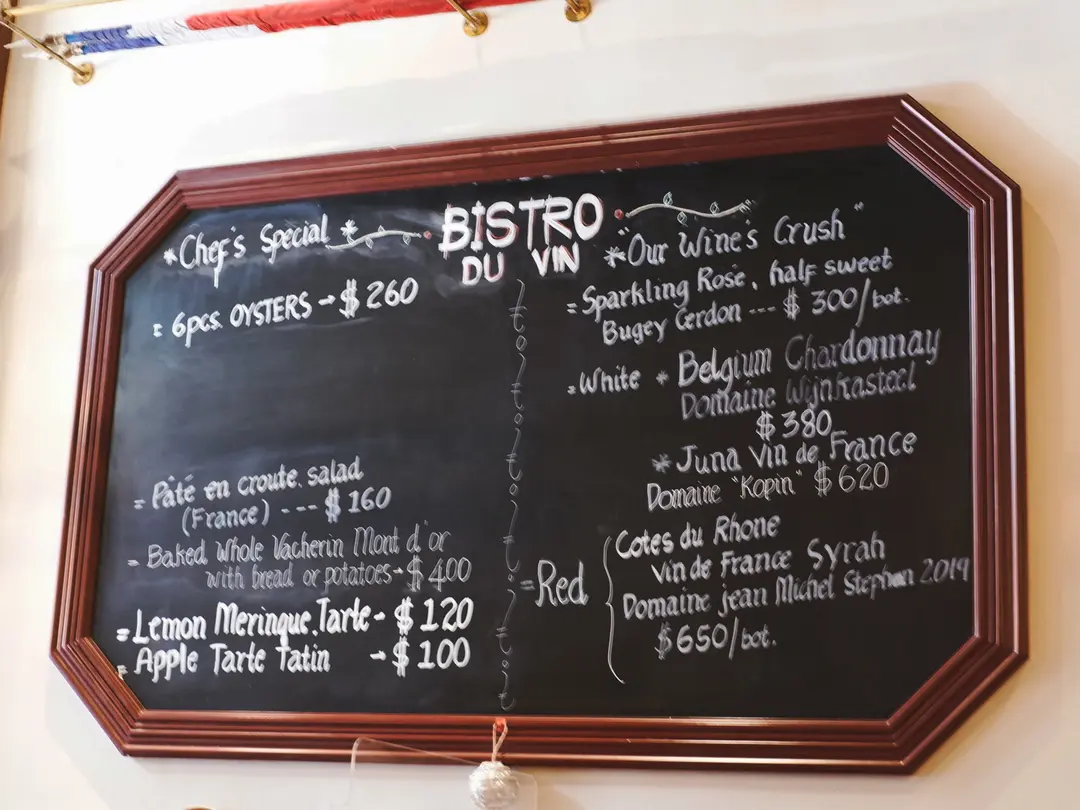 BISTRO
DU VIN
*Chef's Special*
= 6pcs. OYSTERS → $ 260
= Pâté en croute. salad
(France) --- $ 160
= Baked Whole Vacherin Mont d'or
with bread or potatoes → $ 400
= Lemon Meringue. Tarte - $ 120
= Apple Tarte Tatin → $ 100
*"Our Wine's Crush"
= Sparkling Rosé, half sweet
Bugey Cerdon --- $ 300/bot.
= White * Belgium Chardonnay
Domaine Wijnkasteel
$ 380
* Juna Vin de France
Domaine "Kopin" $ 620
= Red
Cotes du Rhone
vin de France Syrah
Domaine jean Michel Stephan 2019
$ 650/bot.